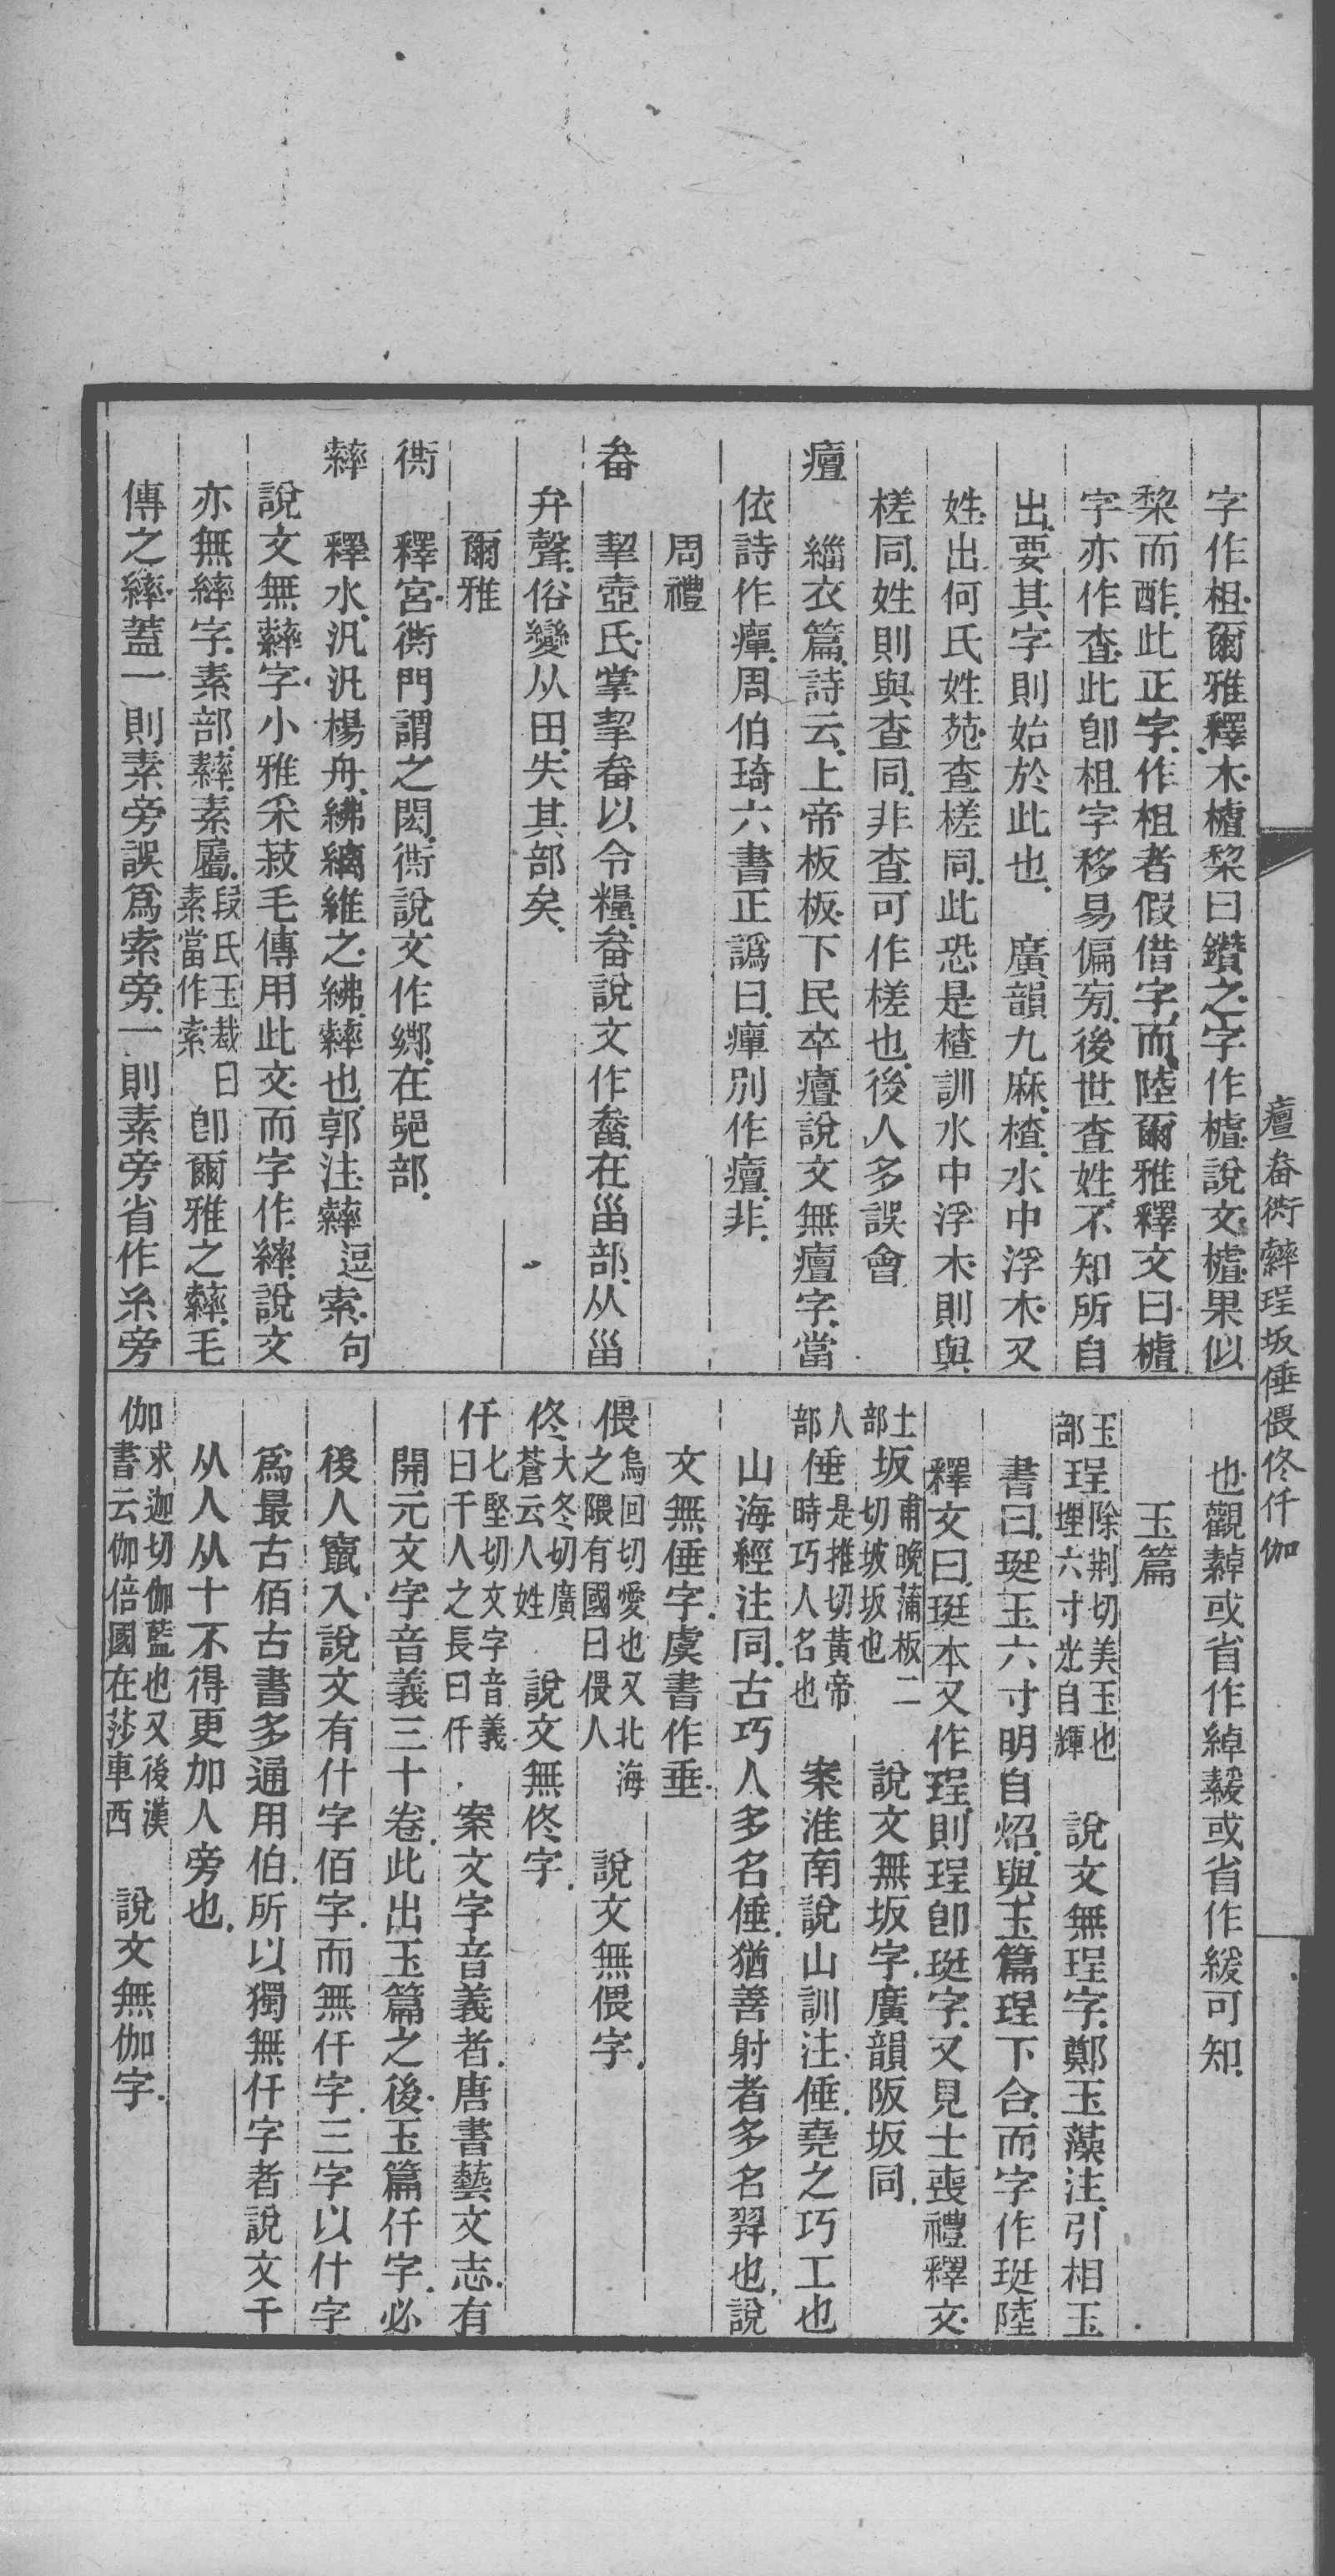 字作柤。爾雅釋木。樝棃曰鑽之。字作樝。說文。樝。果似
棃而酢。此正字。作柤者假借字。而陸爾雅釋文曰。樝
字亦作查。此卽柤字移易偏㫄。後世查姓。不知所自
出。要其字則始於此也。 廣韻九麻。楂。水中浮木。又
姓。出何氏姓苑。查槎同。此恐是楂訓水中浮木。則與
槎同。姓則與查同。非查可作槎也。後人多誤會
癉 緇衣篇。詩云。上帝板板。下民卒癉。說文無癉字。當
依詩作癉。周伯琦六書正譌曰。癉別作癉。非。
周禮
畚 挈壺氏。掌挈畚以令糧。畚說文作𤲔。在甾部。从甾
弁聲。俗變从田。失其部矣。
爾雅
衖 釋宮。衖門謂之閎。衖說文作𨞠。在𨛜部。
繂 釋水。汎汎楊舟。紼縭維之。紼。繂也。郭注。繂 逗 索。句
說文無繂字。小雅采菽毛傳用此文。而字作繂。說文
亦無繂字。素部。䌦。素屬。段氏玉裁曰素當作索 卽爾雅之繂。毛
傳之繂。蓋一則素旁誤爲索旁。一則素旁省作糸旁
也。觀䋤或省作綽。䌧或省作緩可知。
玉篇
玉部 珵 除荆切美玉也埋六寸光自輝 說文無珵字。鄭玉藻注。引相玉
書曰。珽玉六寸。明自炤。與玉篇珵下合。而字作珽。陸
釋文曰。珽本又作珵。則珵卽珽字。又見士喪禮釋文。
土部 坂 甫晚蒲板二切坡坂也 說文無坂字。廣韻阪坂同。
人部 倕 是推切黃帝時巧人名也 案淮南說山訓注。倕。堯之巧工也
山海經注同。古巧人多名倕。猶善射者多名羿也。說
文無倕字。虞書作垂。
偎 烏回切愛也又北海之隈有國曰偎人 說文無偎字。
佟 大冬切廣蒼云人姓 說文無佟字。
仟 七堅切文字音義曰千人之長曰仟 案文字音義者。唐書藝文志。有
開元文字音義三十卷。此出玉篇之後。玉篇仟字。必
後人竄入。說文有什字佰字。而無仟字。三字以什字
爲最古。佰古書多通用伯。所以獨無仟字者。說文千
从人从十。不得更加人旁也。
伽 求迦切伽藍也又後漢書云伽倍國在莎車西 說文無伽字。